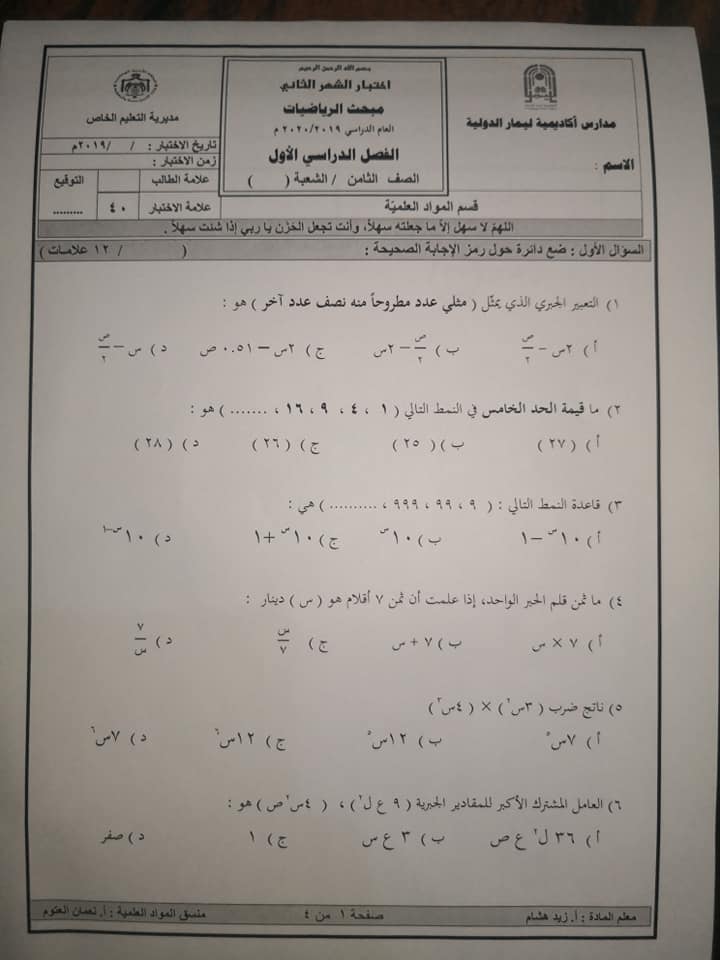 بسم الله الرحمن الرحيم
اختبار الشهر الثاني
مبحث الرياضيات
العام الدراسي ٢٠٢٠/٢٠١٩ م
الفصل الدراسي الأول
الصف الثامن / الشعبة ( )
مدارس أكاديمية ليمار الدولية
الاسم :
قسم المواد العلمية
مديرية التعليم الخاص
تاريخ الاختبار : / /٢٠١٩م
زمن الاختبار :
علامة الطالب التوقيع
علامة الاختبار ٤٠ .........
اللهم لا سهل إلا ما جعلته سهلاً، وأنت تجعل الحَزن يا ربي إذا شئت سهلاً .
السؤال الأول : ضع دائرة حول رمز الإجابة الصحيحة : ( / ١٢ علامات )
١) التعبير الجبري الذي يمثّل ( مثلي عدد مطروحاً منه نصف عدد آخر ) هو :
أ ) ٢س – ص/٢ ب ) ص/٢ – ٢س ج ) ٢س – ٠.٥١ ص د ) س – ص/٢
٢) ما قيمة الحد الخامس في النمط التالي ( ١ ، ٤ ، ٩ ، ١٦ ، ....... ) هو :
أ ) ( ٢٧ ) ب ) ( ٢٥ ) ج ) ( ٢٦ ) د ) ( ٢٨ )
٣) قاعدة النمط التالي : ( ٩ ، ٩٩ ، ٩٩٩ ، .......... ) هي :
أ ) ١٠^س – ١ ب ) ١٠^س ج ) ١٠^س + ١ د ) ١٠^س–١
٤) ما ثمن قلم الحبر الواحد، إذا علمت أن ثمن ٧ أقلام هو ( س ) دينار :
أ ) ٧ × س ب ) ٧ + س ج ) س/٧ د ) ٧/س
٥) ناتج ضرب ( ٣س^٢ ) × ( ٤س^٣ )
أ ) ٧س^٥ ب ) ١٢س^٥ ج ) ١٢س^٦ د ) ٧س^٦
٦) العامل المشترك الأكبر للمقادير الجبرية ( ٩ ع ل^٢ ) ، ( ٤س^٢ ص ) هو :
أ ) ٣٦ ل^٢ ع ص ب ) ٣ ع س ج ) ١ د ) صفر
معلم المادة : أ. زيد هشام صفحة ١ من ٤ منسق المواد العلمية : أ. نعمان العتوم